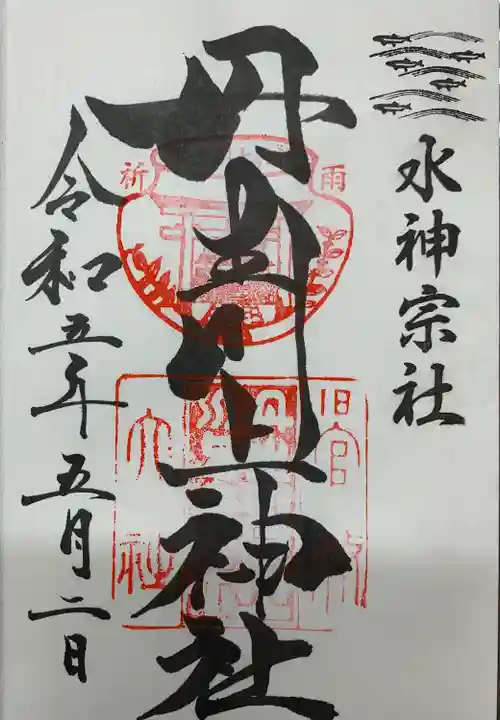 水神宗社
丹生川上神社
雨祈
旧官幣
大社
令和五年五月二日